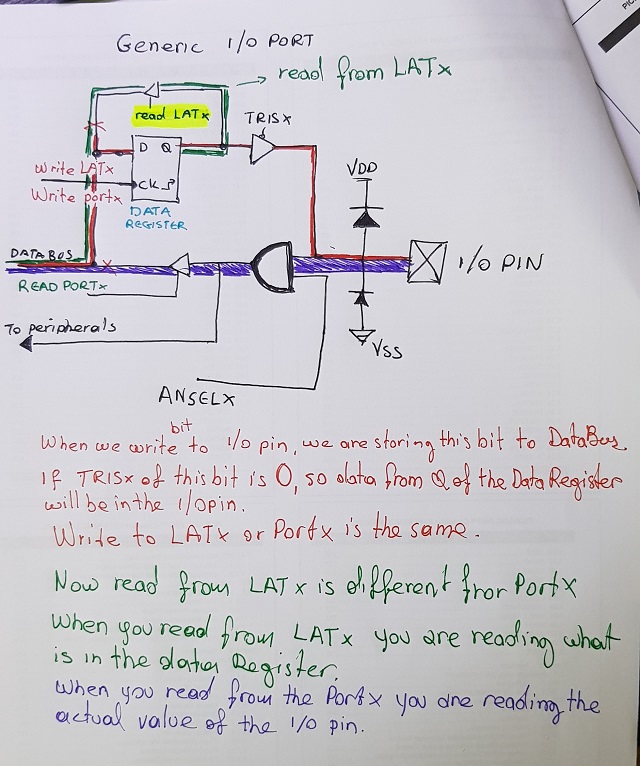 Generic I/O PORT
read from LATx
read LATx
TRISx
D Q
Write LATx
Write portx
CK
DATA
REGISTER
VDD
DATABUS
READ PORTx
I/O PIN
To peripherals
VSS
ANSELX
bit
When we write to I/O pin, we are storing this bit to DataBus
If TRISx of this bit is 0, so data from Q of the Data Register
will be in the I/O pin.
Write to LATx or Portx is the same.
Now read from LATx is different from PortX
When you read from LATx you are reading what
is in the data Register.
When you read from the Portx you are reading the
actual value of the I/O pin.